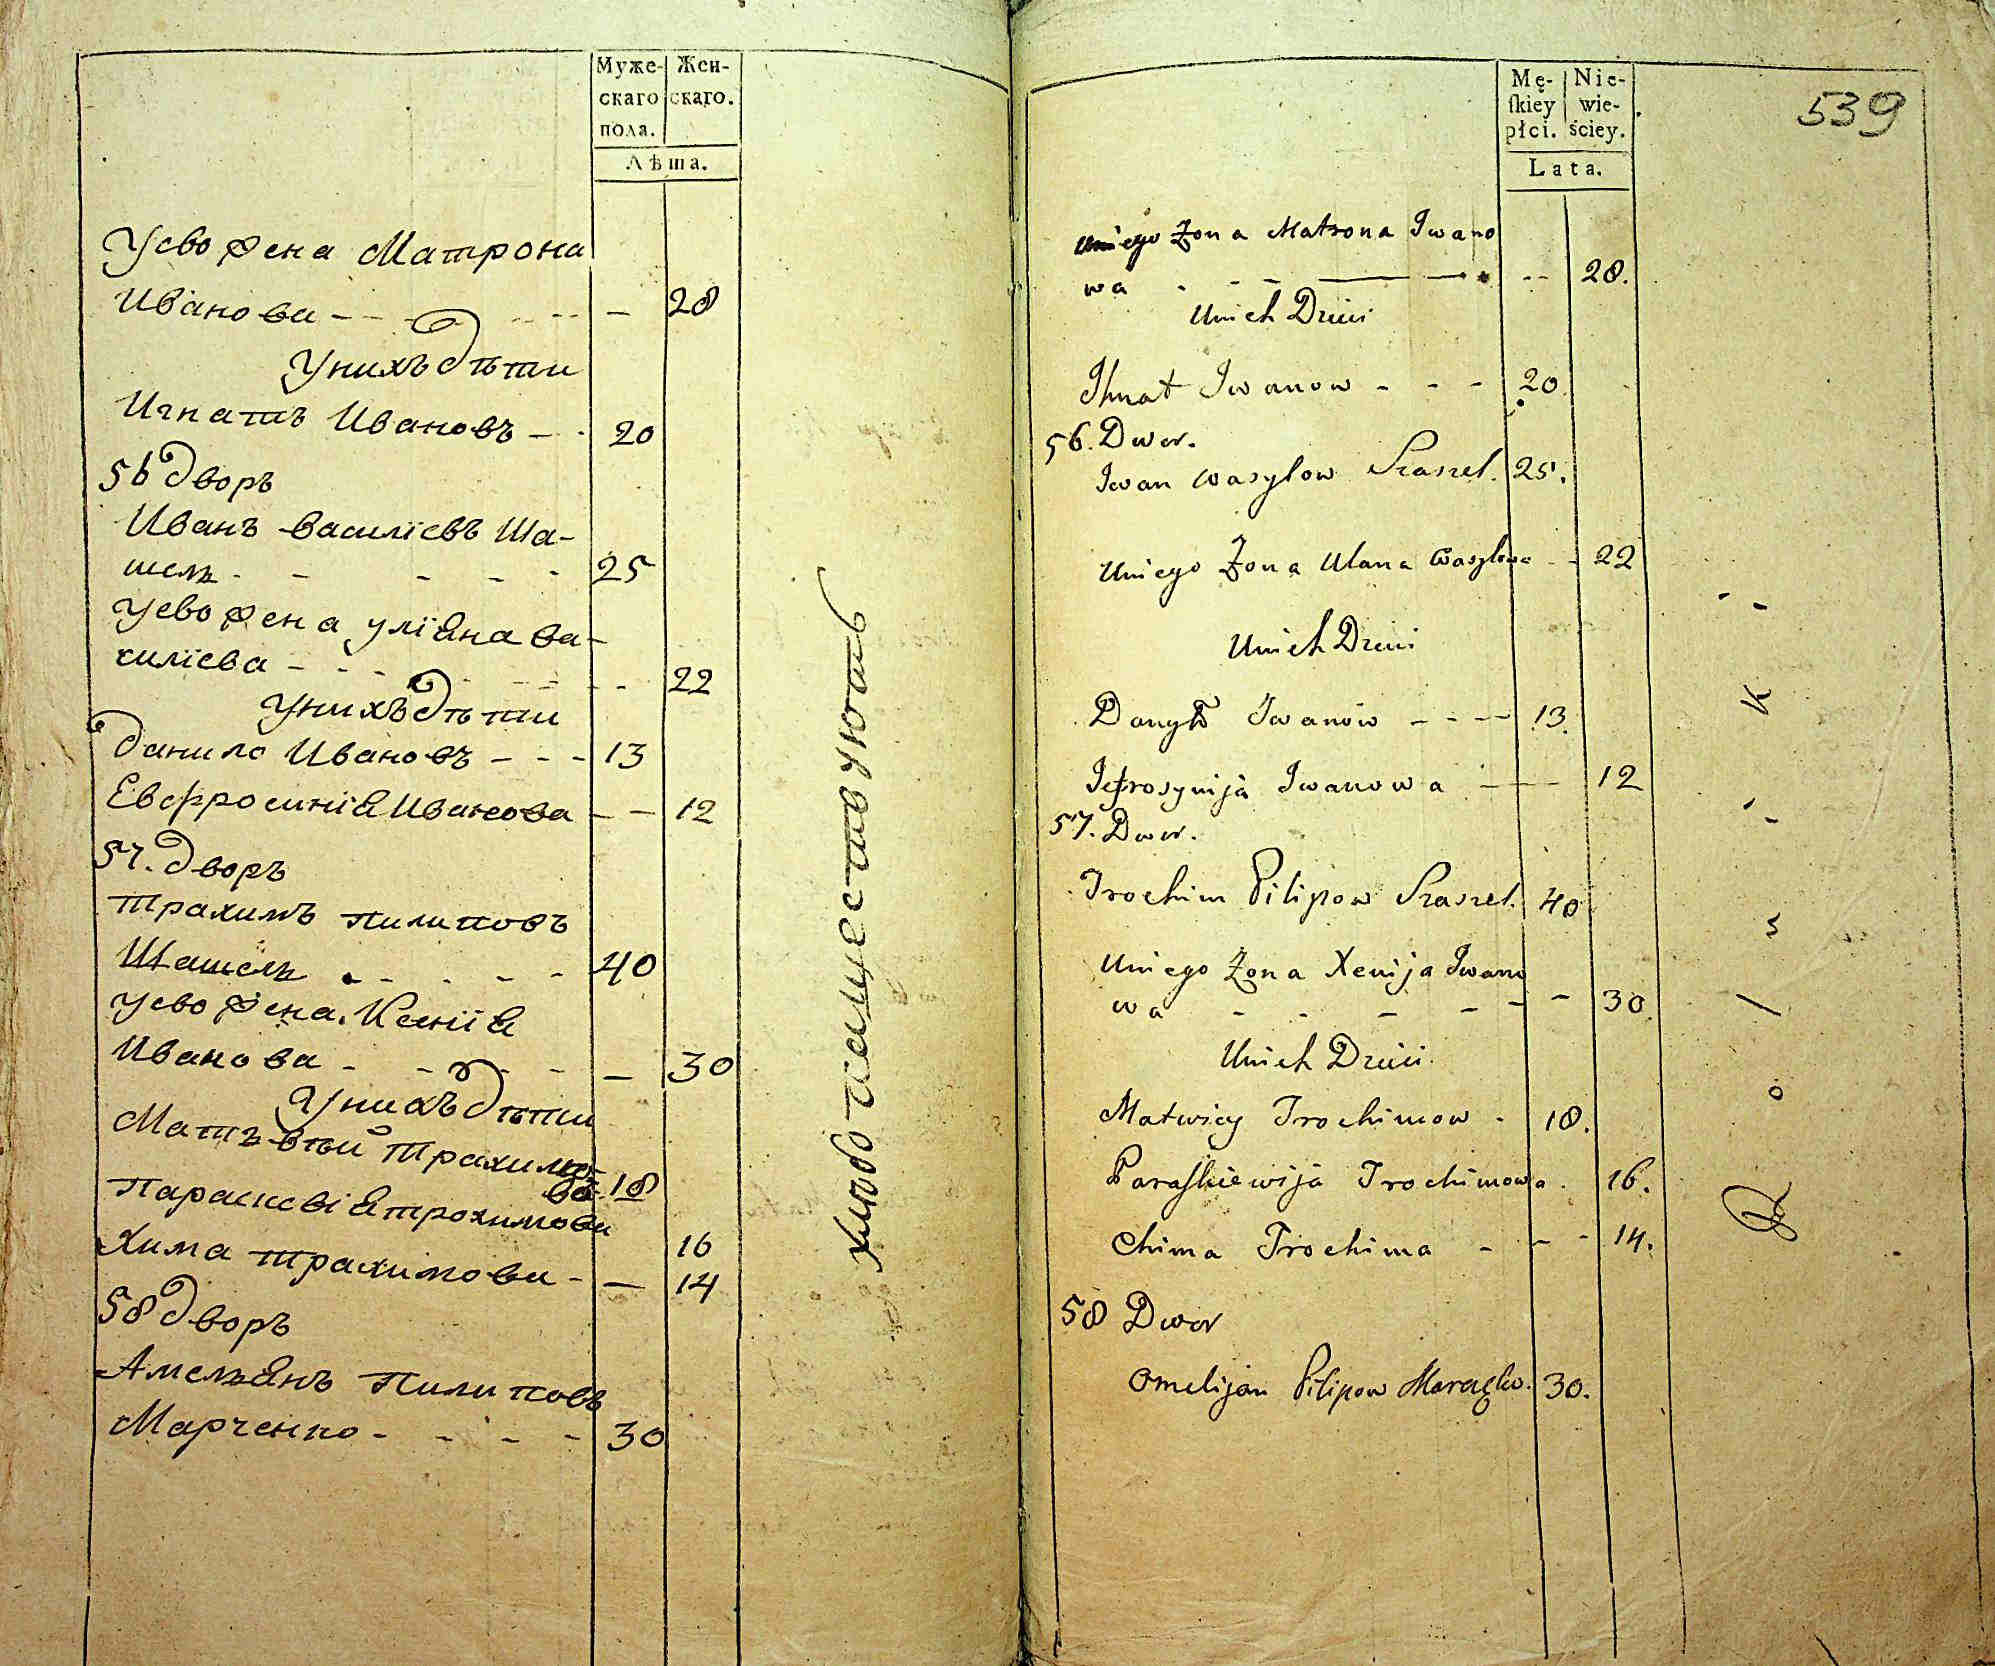 Муже-
скаго
пола.
Жен-
скаго.
Лѣта.
Уево жена Матрона
Иванова - - - - - - 28
Унихъ дѣти
Игнатъ Ивановъ - - 20
56 дворъ
Иванъ василіевъ Ша-
шель - - - - - 25
Уево жена уліяна ва-
силіева - - - - - - 22
Унихъ дѣти
Данило Ивановъ - - - 13
Евфросинія Иванова - - 12
57. дворъ
Трахимъ Пилиповъ
Шашель - - - - 40
Уево жена Ксенія
Иванова - - - - - 30
Унихъ дѣти
Матъвѣй Трахимо-
въ 18
Параскевія трохимова
16
Хима Трахимова - - 14
58 дворъ
Амельянъ Пилиповъ
Марченко - - - - 30
хлебопашествуютъ
539
Mę-
ſkiey
płci.
Nie-
wie-
ściey.
Lata.
Uniego Żona Matrona Iwano
wa - - - - - - 28.
Unich Dzieci
Ihnat Iwanow - - - 20
56. Dwor.
Iwan Wasylow Szaszel. 25.
Uniego Żona Ulana Wasylowa - - 22
Unich Dzieci
Danyło Iwanow - - - - 13
Jefrosynija Iwanowa - - - 12
57. Dwor.
Trochim Pilipow Szaszel. 40
Uniego Żona Xenija Iwano
wa - - - - - - 30
Unich Dzieci
Matwiey Trochimow - 18.
Paraſkiewija Trochimowa. 16.
Chima Trochima - - - 14.
58 Dwor
Omelijan Pilipow 30.